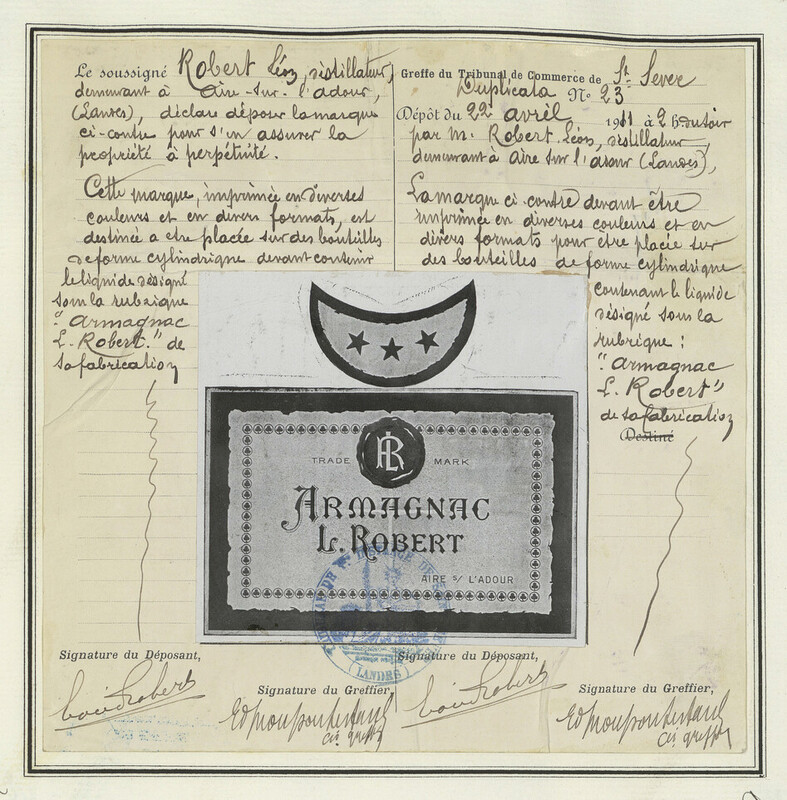 Le soussigné Robert Léon, distillateur,
demeurant à Aire-sur-l'adour,
(Landes), déclare déposer la marque
ci-contre pour s'en assurer la
propriété à perpétuité.
Cette marque, imprimée en diverses
couleurs et en divers formats, est
destinée a etre placée sur des bouteilles
de forme cylindrique devant contenir
le liquide désigné
sous la rubrique
"Armagnac
L. Robert." de
sa fabrication
Greffe du Tribunal de Commerce de St Sever
Duplicata N° 23
Dépôt du 22 avril 1911 à 2 h. du soir
par M. Robert Léon, distillateur,
demeurant à Aire sur l'adour (Landes),
La marque ci contre devant être
imprimée en diverses couleurs et en
divers formats pour être placée sur
des bouteilles de forme cylindrique
contenant le liquide
désigné sous la
rubrique :
"Armagnac
L. Robert"
de sa fabrication
Destiné
LR
TRADE MARK
ARMAGNAC
L. ROBERT
AIRE S/ L'ADOUR
(LANDES)
Signature du Déposant,
Robert
Signature du Greffier,
cis greffier
Signature du Déposant,
Robert
Signature du Greffier,
cis greffier